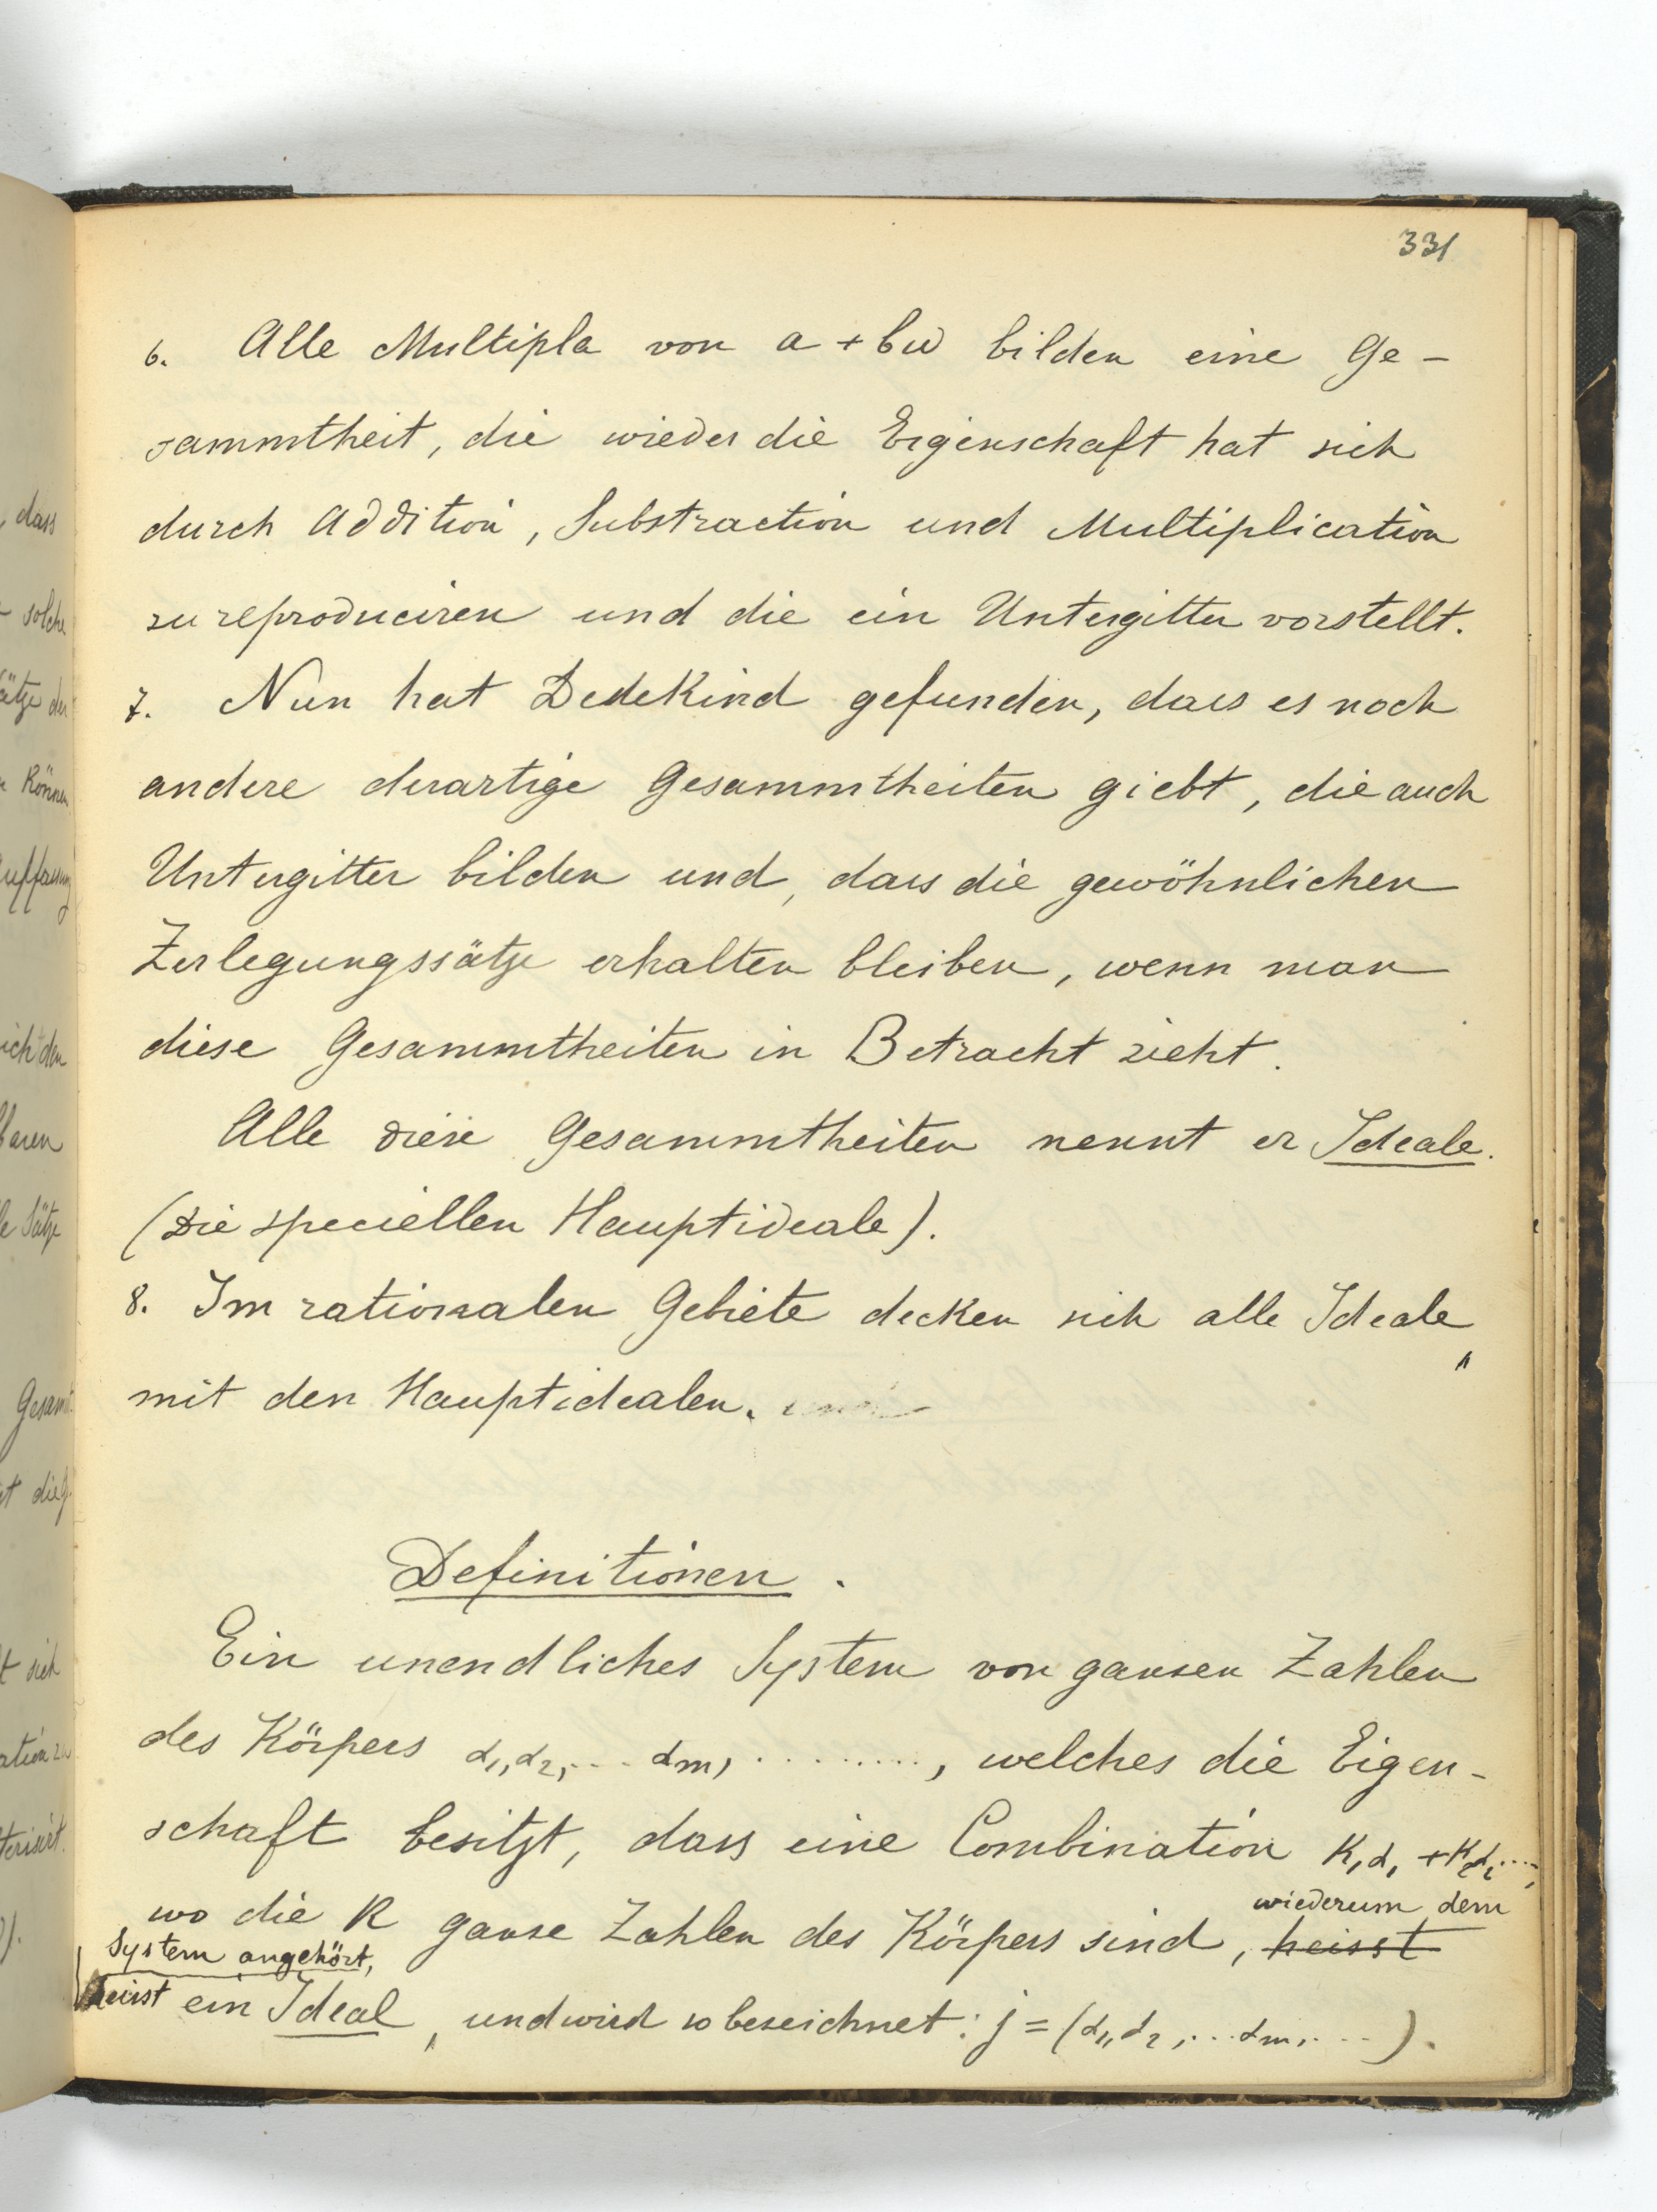 331
6. Alle Multipla von a + bω bilden eine Ge-
sammtheit, die wieder die Eigenschaft hat sich
durch Addition, Substraction und Multiplication
zu reproduciren und die ein Untergitter vorstellt.
7. Nun hat Dedekind gefunden, dass es noch
andere derartige Gesammtheiten giebt, die auch
Untergitter bilden und, dass die gewöhnlichen
Zerlegungssätze erhalten bleiben, wenn man
diese Gesammtheiten in Betracht zieht.
Alle diese Gesammtheiten nennt er Ideale.
(Die speciellen Hauptideale).
8. Im rationalen Gebiete decken sich alle Ideale
mit den Hauptidealen.
Definitionen.
Ein unendliches System von ganzen Zahlen
des Körpers α₁, α₂, ... αm, ........., welches die Eigen-
schaft besitzt, dass eine Combination K₁α₁ + K₂α₂ ....,
wo die K ganze Zahlen des Körpers sind, heisst wiederum dem
System angehört,
heisst ein Ideal, und wird so bezeichnet: j = (α₁, α₂, ... αm, ...).
dass
solche
Können
Sätze